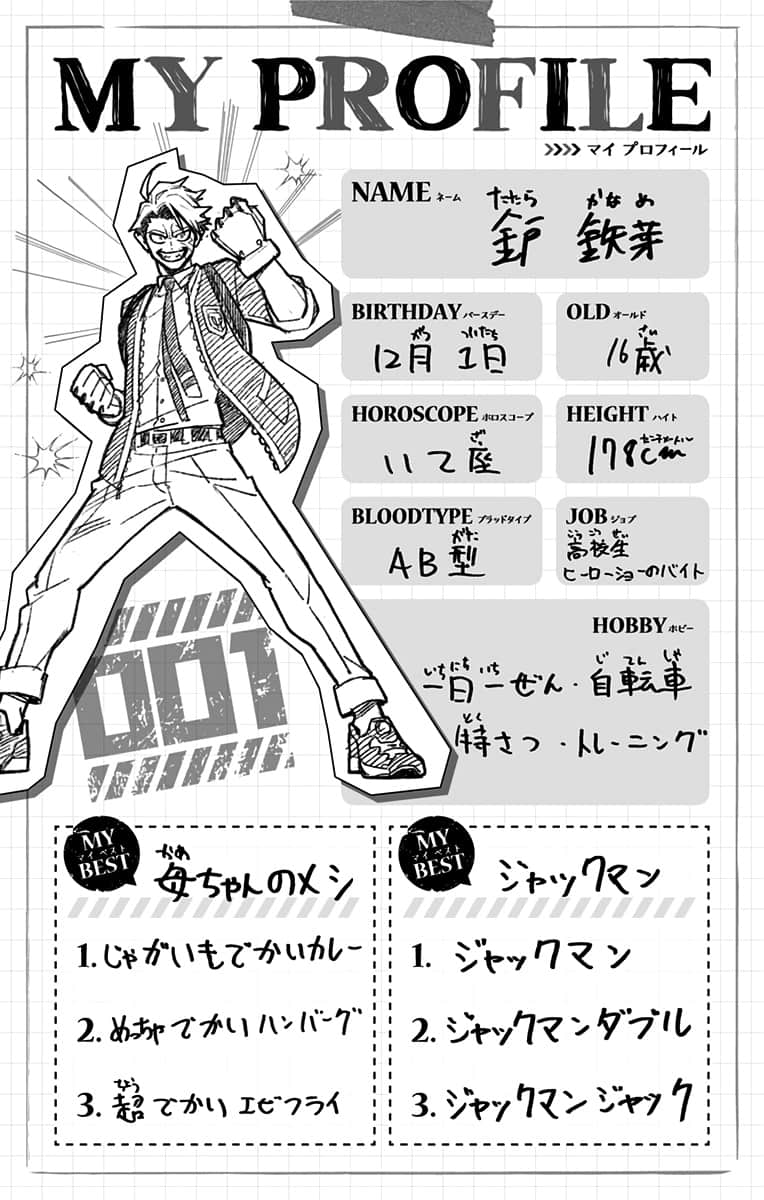 MY PROFILE
>>>> マイ プロフィール
NAME ネーム
たたら かなめ
鈩 鉄芽
BIRTHDAY バースデー
がつ ついたち
12月 1日
OLD オールド
さい
16歳
HOROSCOPE ホロスコープ
ざ
いて座
HEIGHT ハイト
センチメートル
178cm
BLOODTYPE ブラッドタイプ
がた
AB型
JOB ジョブ
こうこうせい
高校生
ヒーローショーのバイト
001
HOBBY ホビー
いちにちいち じてんしゃ
一日一ぜん・自転車
とく
特さつ・トレーニング
MY
マイ ベスト
BEST
かあ
母ちゃんのメシ
1. じゃがいもでかいカレー
2. めっちゃでかいハンバーグ
ちょう
3. 超でかいエビフライ
MY
マイ ベスト
BEST
ジャックマン
1. ジャックマン
2. ジャックマンダブル
3. ジャックマンジャック